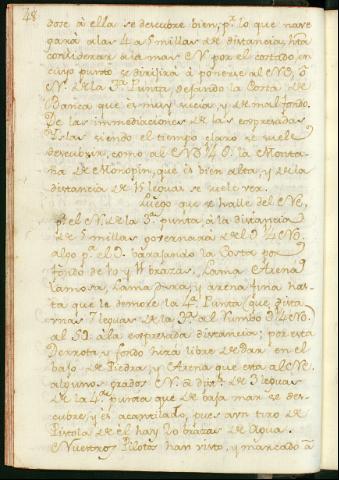 48
dose à ella se descubre bien, p.r lo que nave
gará à las 4 a 5 millas de distancia, hta
considerar à la mas EN por el costado, en
cuyo punto se dirijirá à ponerse al NO, ò
N. de la 3.a Punta dejando la Costa de
Banca que es muy sucia, y de mal fondo.
De las immediaciones de las expresadas
Yslas siendo el tiempo claro se suele
descubrir, como al NO 1/4 O. la Monta-
ña de Monopin, que es bien alta, y de la
distancia de 16 leguas se suele vea.
Luego que se halle del NE,
p.a el N. de la 3.a punta à la distancia
de 5 millas governará del O 1/4 NO.
algo p.a el O. barajando la Costa por
fondo de 10 y 11 brazas, Lama Arena
lamosa, Lama dura, y arena fina has-
ta que le demore la 4.a Punta (que dista
mas 7 leguas de la 3.a al Rumbo O 1/4 NO.
al SO. à la expresada distancia; por esta
Derrota y fondo hirá libre de dar en el
bajo de Piedra, y Arena que esta al NE
algunos grados N. a dist.a de 3 leguas
de la 4.a punta que de baja mar se des-
cubre, y es acantilado, pues à un tiro de
Pistola de él hay 20 brazas de Agua.
Nuestros Pilotos han visto, y marcado à